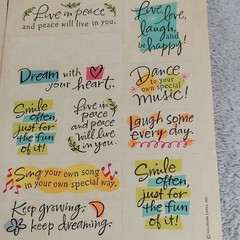 Live in peace
and peace will live in you.
Live, love,
laugh, and
be happy!
Dream with
your heart.
Dance
to your
own special
music!
Smile
often,
just for
the fun
of it!
Live in
peace
and peace
will live
in you.
Laugh some
every day.
Sing your own song
in your own special way.
Smile
often,
just for
the fun
of it!
Keep growing;
keep dreaming.